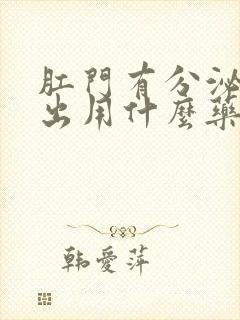 肛門有分泌
出用什麼藥
韩愛萍